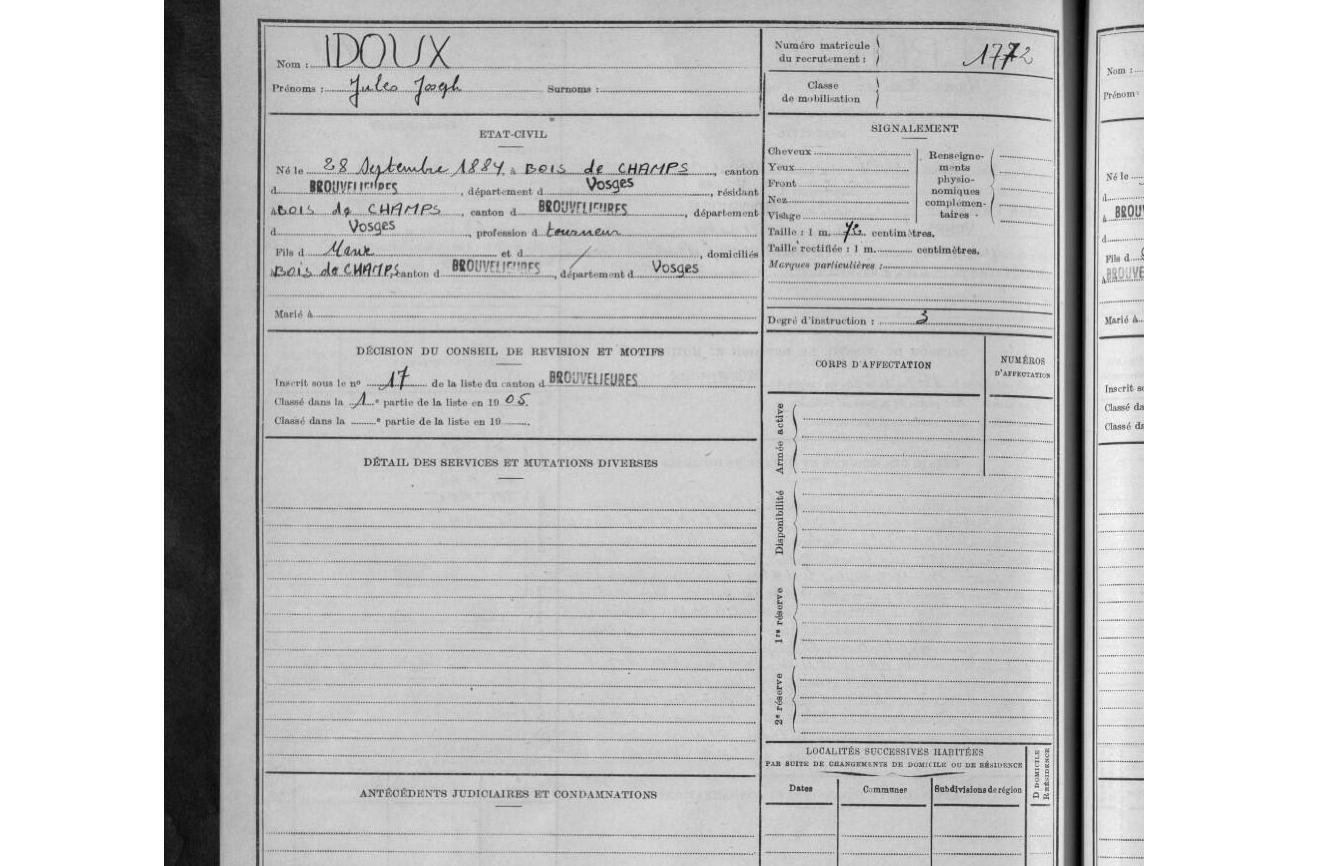 Nom : IDOUX
Prénoms : Jules Joseph Surnoms :
ETAT-CIVIL
Né le 28 Septembre 1884, à BOIS de CHAMPS, canton
d BROUVELIEURES, département d Vosges, résidant
à BOIS de CHAMPS, canton d BROUVELIEURES, département
d Vosges, profession d tourneur
Fils d et d /, domiciliés
à BOIS de CHAMPS canton d BROUVELIEURES, département d Vosges
Marié à
DÉCISION DU CONSEIL DE REVISION ET MOTIFS
Inscrit sous le nº 17 de la liste du canton d BROUVELIEURES
Classé dans la 1e partie de la liste en 19 05.
Classé dans la e partie de la liste en 19 .
DÉTAIL DES SERVICES ET MUTATIONS DIVERSES
ANTÉCÉDENTS JUDICIAIRES ET CONDAMNATIONS
Numéro matricule
du recrutement : 1772
Classe
de mobilisation
SIGNALEMENT
Cheveux
Yeux
Front
Nez
Visage
Renseigne-
ments
physio-
nomiques
complémen-
taires
Taille : 1 m. centimètres.
Taille rectifiée : 1 m. centimètres.
Marques particulières :
Degré d'instruction : 3
CORPS D'AFFECTATION
NUMÉROS
D'AFFECTATION
Armée active
Disponibilité
1re réserve
2e réserve
LOCALITÉS SUCCESSIVES HABITÉES
PAR SUITE DE CHANGEMENTS DE DOMICILE OU DE RÉSIDENCE
D DOMICILE
R RÉSIDENCE
Dates Communes Subdivisions de région
Nom :
Prénom
Né le
d
à BROU
d
Fils d
à BROU
Marié à
Inscrit s
Classé da
Classé da